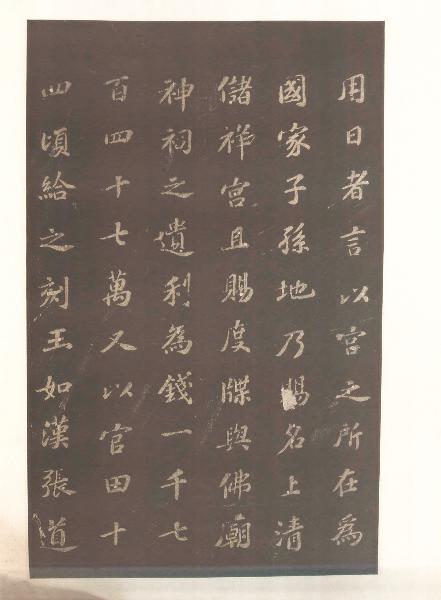 用日者言以宮之所在為
國家子孫地乃賜名上清
儲祥宮且賜度牒與佛廟
神祠之遺利為錢一千七
百四十七萬又以官田十
四頃給之刻玉如漢張道